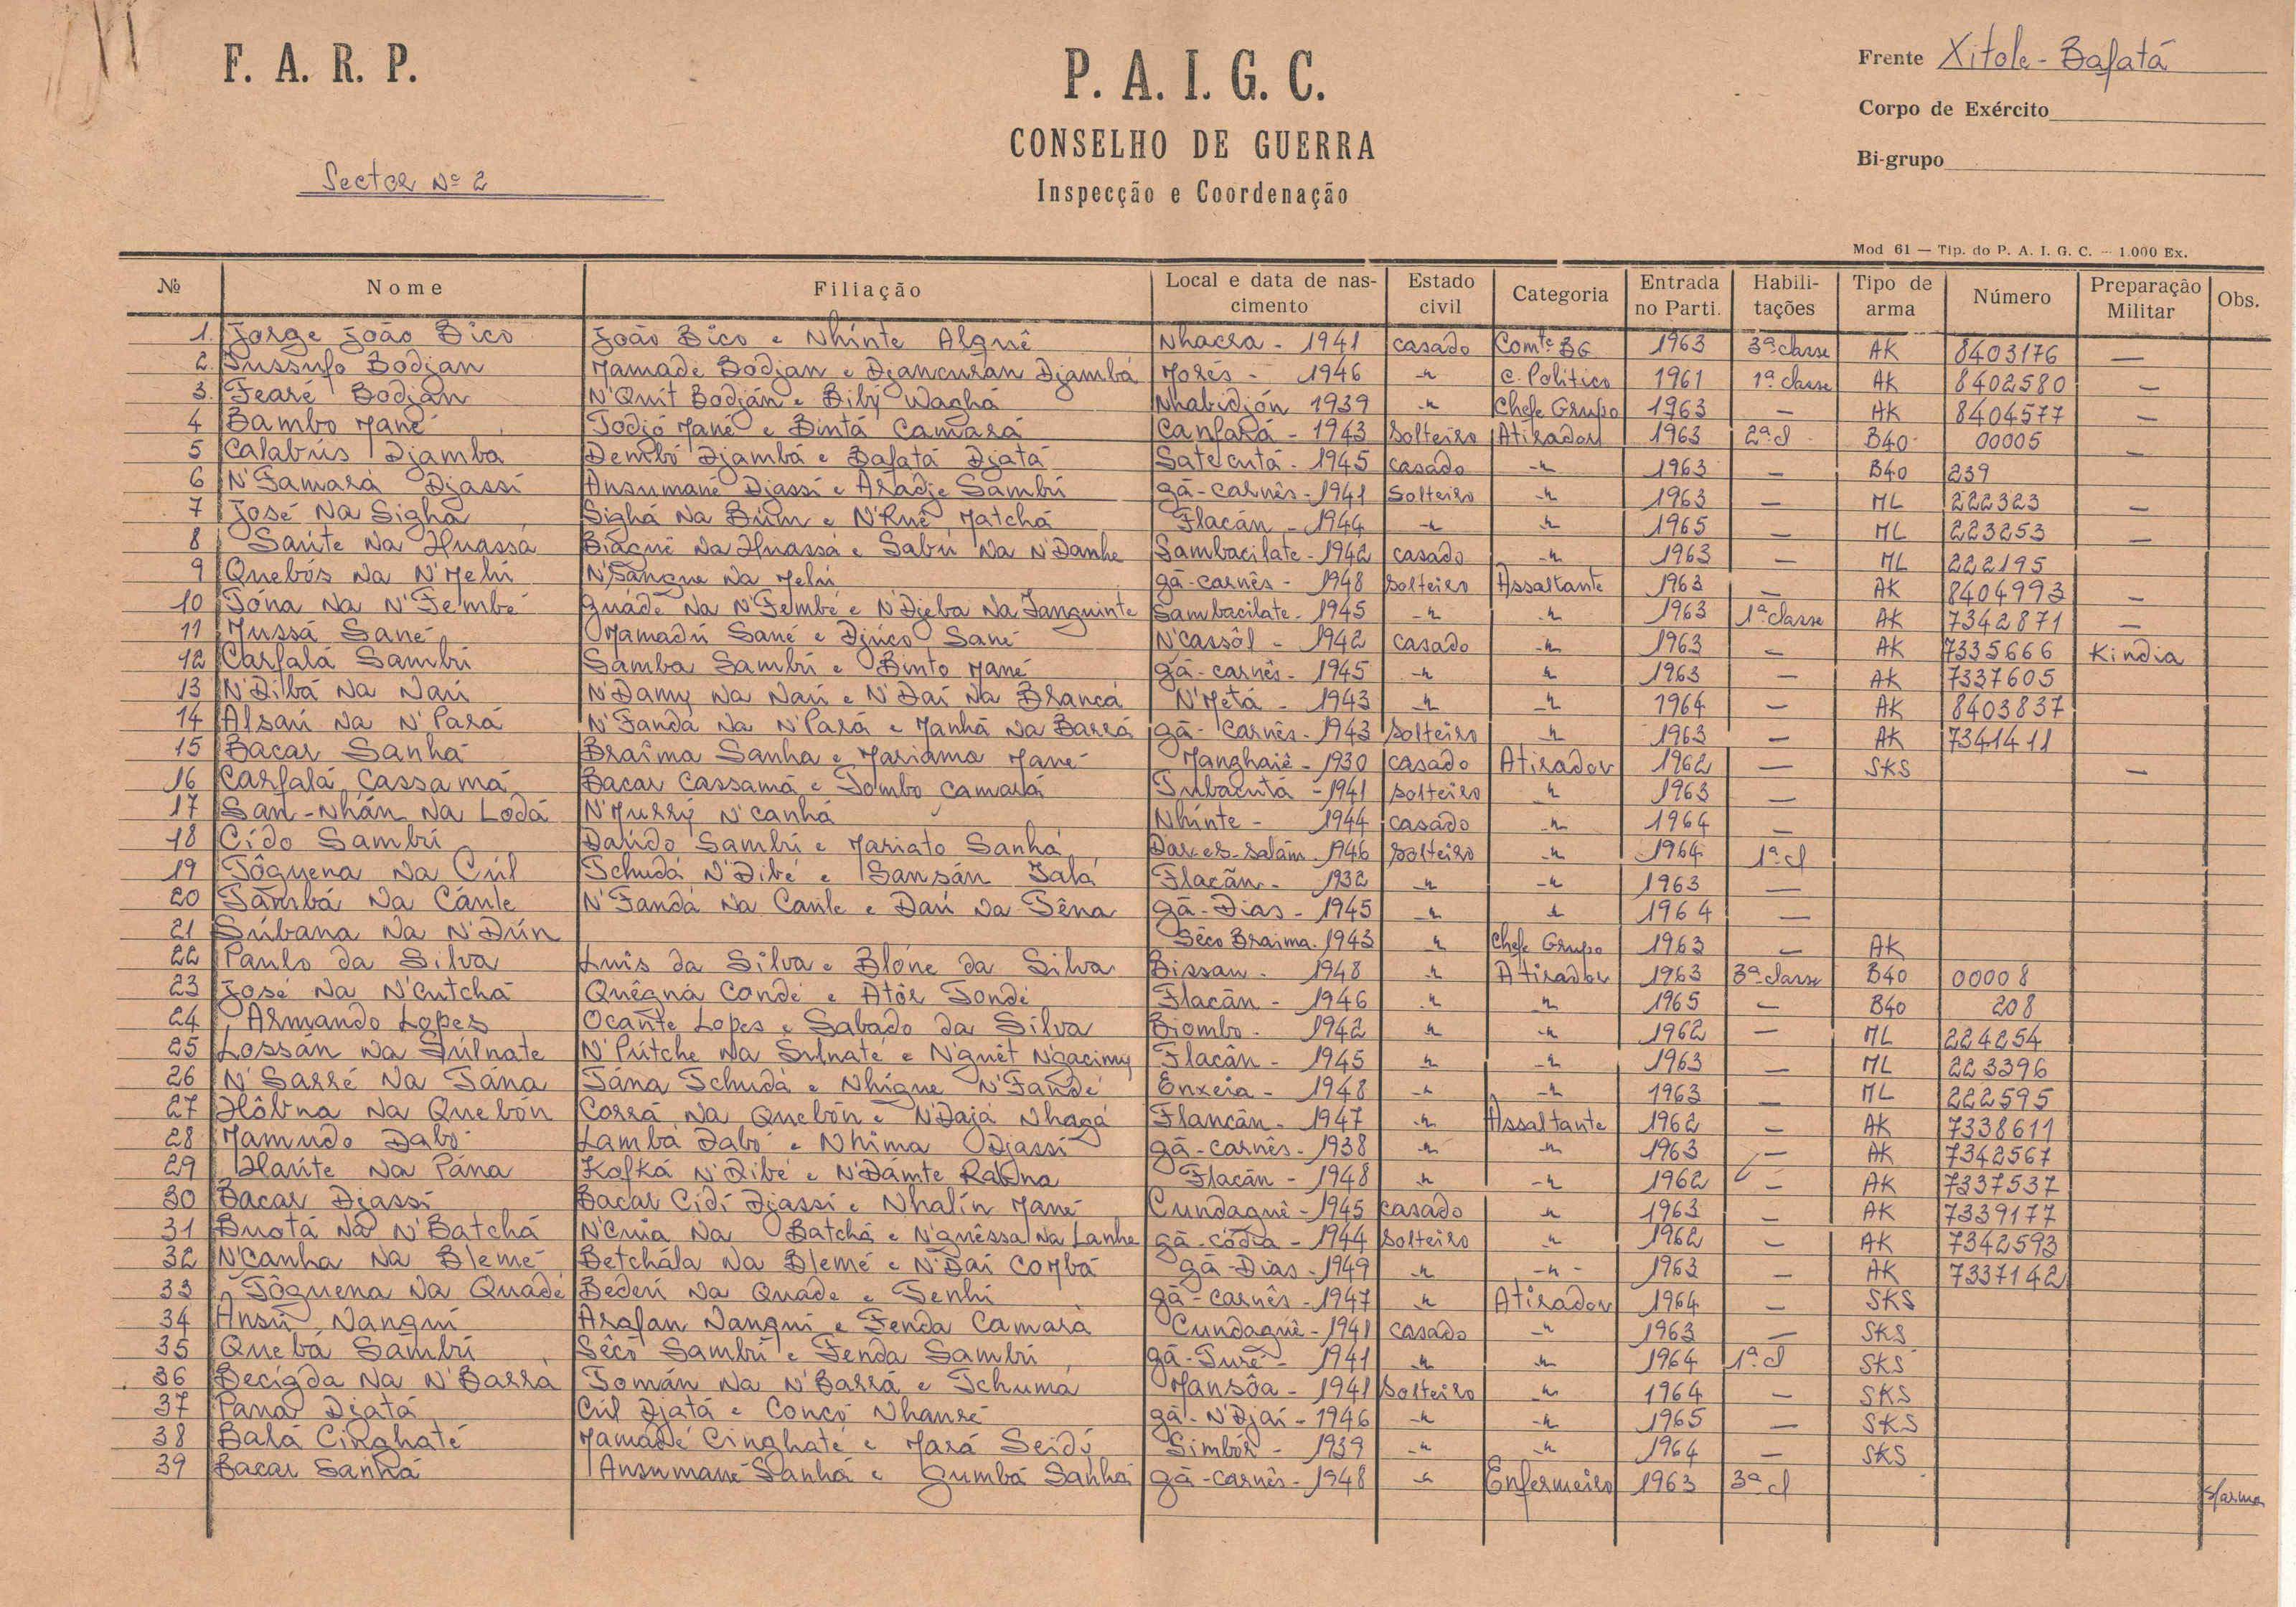 F. A. R. P.
P. A. I. G. C.
CONSELHO DE GUERRA
Inspecção e Coordenação
Frente Xitole - Bafatá
Corpo de Exército
Bi-grupo
Sector Nº 2
Mod 61 — Tip. do P. A. I. G. C. — 1.000 Ex.
Nº Nome Filiação Local e data de nascimento Estado civil Categoria Entrada no Parti. Habilitações Tipo de arma Número Preparação Militar Obs.
1. Jorge João Bico João Bico e Nhínte Alquê Nhacra - 1941 casado Comte BG 1963 3ª classe AK 8403176 —
2. Bodjan Mamadé Bodjan e Djancurán Djambá Morés - 1946 -"- C. Politico 1961 1ª classe AK 8402580 —
3. Fearé Bodján N'Quit Bodján e Biby Waghá Nhabidjón 1939 -"- Chefe Grupo 1963 — AK 8404577 —
4 Bambo Mané Todjó Mané e Bintá Camará Canfará - 1943 Solteiro Atirador 1963 2ª cl B40 00005 —
5 Calabús Djamba Dembó Djambá e Bafatá Djatá Satecutá - 1945 casado -"- 1963 — B40 239
6 N'Famará Djassí Ansumané Djassí e Aradje Sambú gã-carnês - 1941 Solteiro -"- 1963 — ML 222323 —
7 José Na Sighá Sighá Na Búm e N'Rué Matchá Flacán - 1944 -"- -"- 1965 — ML 223253 —
8 Saúte Na Huassá Biaguê Na Huassá e Sabú Na N'Danhe Sambacilate - 1942 casado -"- 1963 — ML 222195
9 Quebós Na N'Melú N'Sangue Na Melú gã-carnês - 1948 Solteiro Assaltante 1963 — AK 8404993 —
10 Tóna Na N'Fembé Guáde Na N'Fembé e N'Djeba Na Tanguinte Sambacilate - 1945 -"- -"- 1963 1ª classe AK 7342871 —
11 Mussá Sané Mamadú Sané e Djúco Sané N'Cassôl - 1942 casado -"- 1963 — AK 7335666 Kindia
12 Carfalá Sambú Samba Sambú e Binto Mané gã-carnês - 1945 -"- -"- 1963 — AK 7337605
13 N'Dibá Na Naú N'Damy Na Naú e N'Daí Na Brancá N'Metá - 1943 -"- -"- 1964 — AK 8403837
14 Alsaú Na N'Pará N'Fanda Na N'Pará e Manhã Na Barrá gã-carnês - 1943 Solteiro -"- 1963 — AK 7341411
15 Bacar Sanhá Braíma Sanha e Mariama Mané Manghaiê - 1930 casado Atirador 1962 — SKS —
16 Carfalá Cassamá Bacar Cassamá e Tombo Camará Tubacutá - 1941 Solteiro -"- 1963 —
17 San-Nhán Na Lodá N'Murry N'canhá Nhínte - 1944 casado -"- 1964 —
18 Cído Sambú Daúdo Sambú e Mariato Sanhá Dar-es-salám 1946 Solteiro -"- 1964 1ª cl
19 Tôguena Na Cúl Tchudá N'Dibé e Sansán Ialá Flacãn - 1932 -"- -"- 1963 —
20 Tambá Na Cánte N'Fanda Na Cante e Daú Na Têna gã-Dias - 1945 -"- -"- 1964 —
21 Súbana Na N'Dún Sêco Braima - 1943 -"- Chefe Grupo 1963 — AK
22 Paulo da Silva Luis da Silva e Blóne da Silva Bissau - 1948 -"- Atirador 1963 3ª classe B40 00008
23 José Na N'Cutchá Quêgná Condé e Atôr Tondé Flacãn - 1946 -"- -"- 1965 — B40 208
24 Armando Lopes Ocante Lopes e Sabado da Silva Biombo - 1942 -"- -"- 1962 — ML 224254
25 Lossán Na Súlnate N'Pútche Na Sulnaté e N'guêt N'gacimy Flacán - 1945 -"- -"- 1963 — ML 223396
26 N'Sarré Na Tána Tána Tchudá e Nhígue N'Fandé Enxeia - 1948 -"- -"- 1963 — ML 222595
27 Hôbna Na Quebón Corrá Na Quebón e N'Dajá Nhagá Flancãn - 1947 -"- Assaltante 1962 — AK 7338611
28 Mamudo Dabó Lambá Dabó e Nhima Djassí gã-carnês - 1938 -"- -"- 1963 — AK 7342567
29 Haúte Na Pána Kofká N'Dibé e N'Dámte Rabna Flacán - 1948 -"- -"- 1962 — AK 7337537
30 Bacar Djassí Bacar Cidí Djassí e Nhalín Mané Cundaguê - 1945 casado -"- 1963 — AK 7339177
31 Buotá Na N'Batchá N'Cuia Na Batchá e N'guêssa Na Lanhe gã-códea - 1944 Solteiro -"- 1962 — AK 7342593
32 N'Canha Na Blemé Betchála Na Blemé e N'Daí Combá gã-Dias - 1949 -"- -"- 1963 — AK 7337142
33 Tôguena Na Quadé Bedeú Na Quade e Tenhi gã-carnês - 1947 -"- Atirador 1964 — SKS
34 Ansú Nanqui Arafan Nanqui e Fenda Camará Cundaguê - 1941 casado -"- 1963 — SKS
35 Quebá Sambú Sêcó Sambú e Fenda Sambú gã-Turé - 1941 -"- -"- 1964 1ª cl SKS
36 Becígda Na N'Barrá Tomán Na N'Barrá e Tchumá Mansôa - 1941 Solteiro -"- 1964 — SKS
37 Pana Djatá Cúl Djatá e Concó Nhanré gã-N'Djaí - 1946 -"- -"- 1965 — SKS
38 Balá Cinghaté Mamadé Cinghaté e Mará Seidý Simbór - 1939 -"- -"- 1964 — SKS
39 Bacar Sanhá Ansumané Sanhá e Gumbá Sanhá gã-carnês - 1948 -"- Enfermeiro 1963 3ª cl s/arma